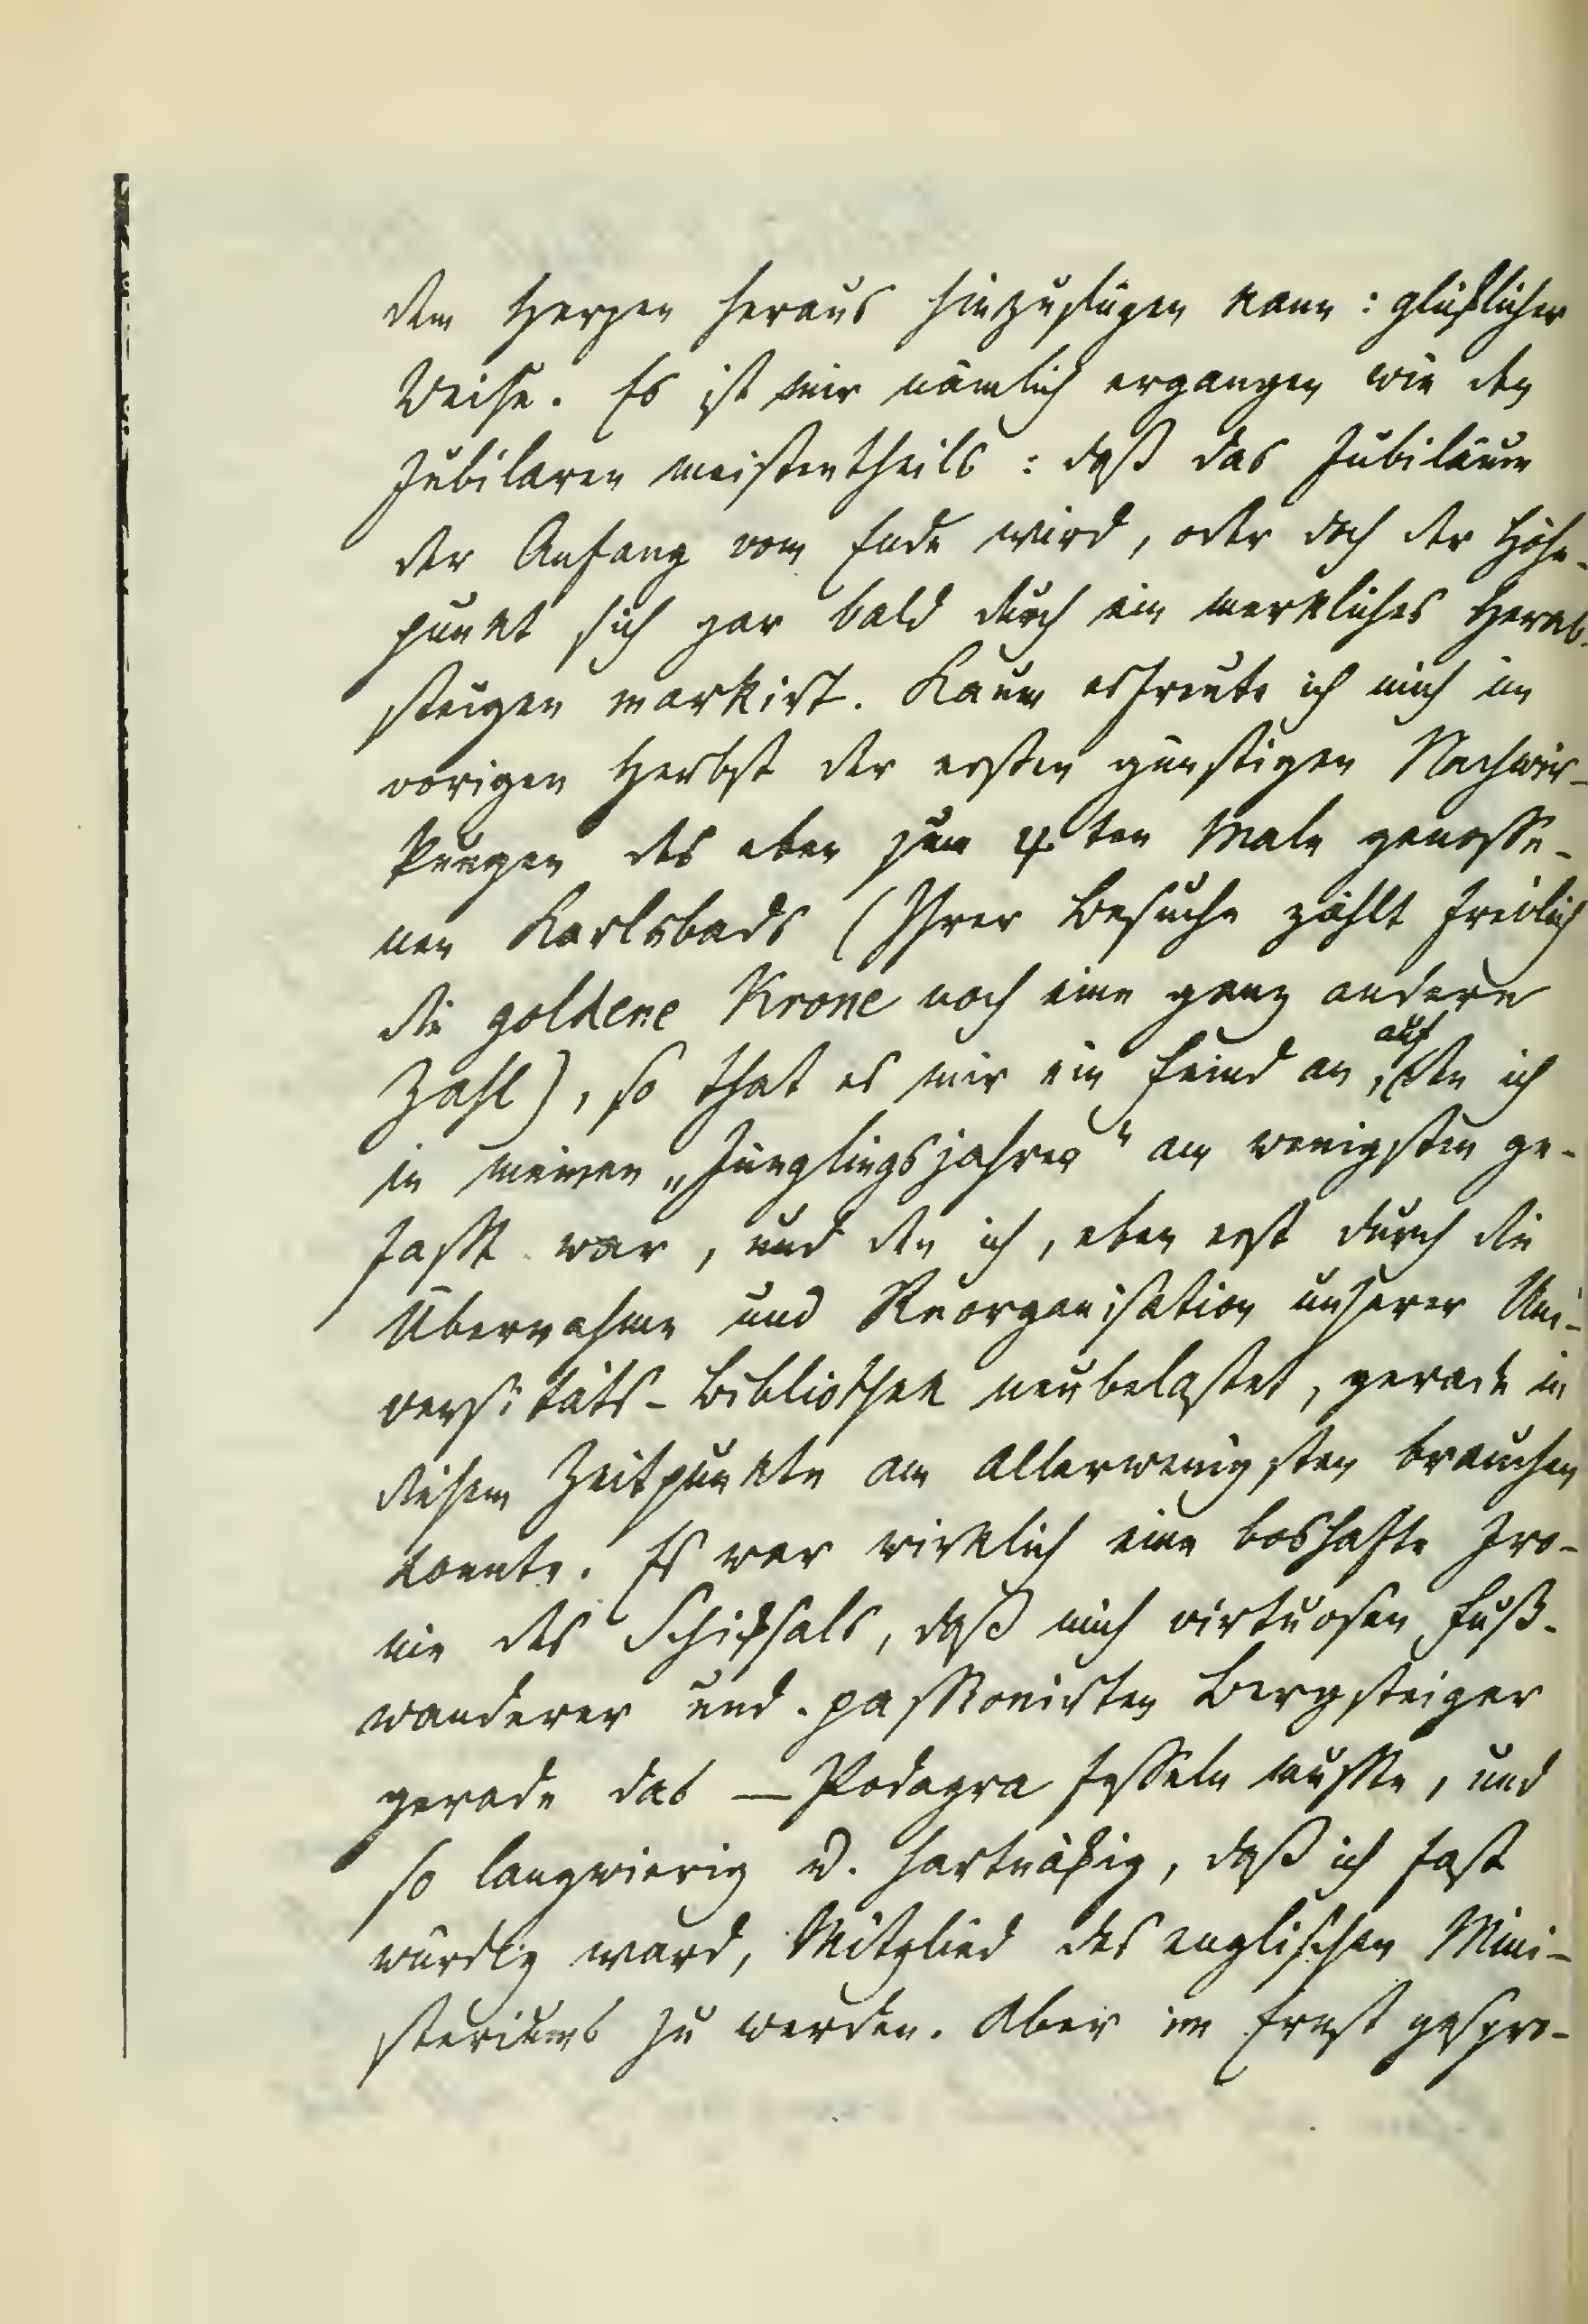 dem Herzen heraus hinzufügen kann: glücklicher
Weise. Es ist mir nämlich ergangen wie den
Jubilaren meistentheils: daß das Jubiläum
der Anfang vom Ende wird, oder doch der Höhe-
punkt sich gar bald durch ein merkliches Herab-
steigen markirt. Kaum erfreute ich mich im
vorigen Herbst der ersten günstigen Nachwir-
kungen des eben zum 4ten Male genosse-
nen Karlsbads (Ihrer Besuche zählt freilich
die goldene Krone noch eine ganz andere
Zahl), so that es mir ein Feind an, auf den ich
in meinen „Jünglingsjahren“ am wenigsten ge-
fasst war, und den ich, eben erst durch die
Übernahme und Reorganisation unserer Uni-
versitäts-Bibliothek neubelastet, gerade in
diesem Zeitpunkte am allerwenigsten brauchen
konnte. Es war wirklich eine boshafte Iro-
nie des Schicksals, daß mich virtuosen Fuß-
wanderer und passionirten Bergsteiger
gerade das — Podagra fesseln musste, und
so langwierig u. hartnäckig, daß ich fast
würdig ward, Mitglied des englischen Mini-
steriums zu werden. Aber im Ernst gespro-